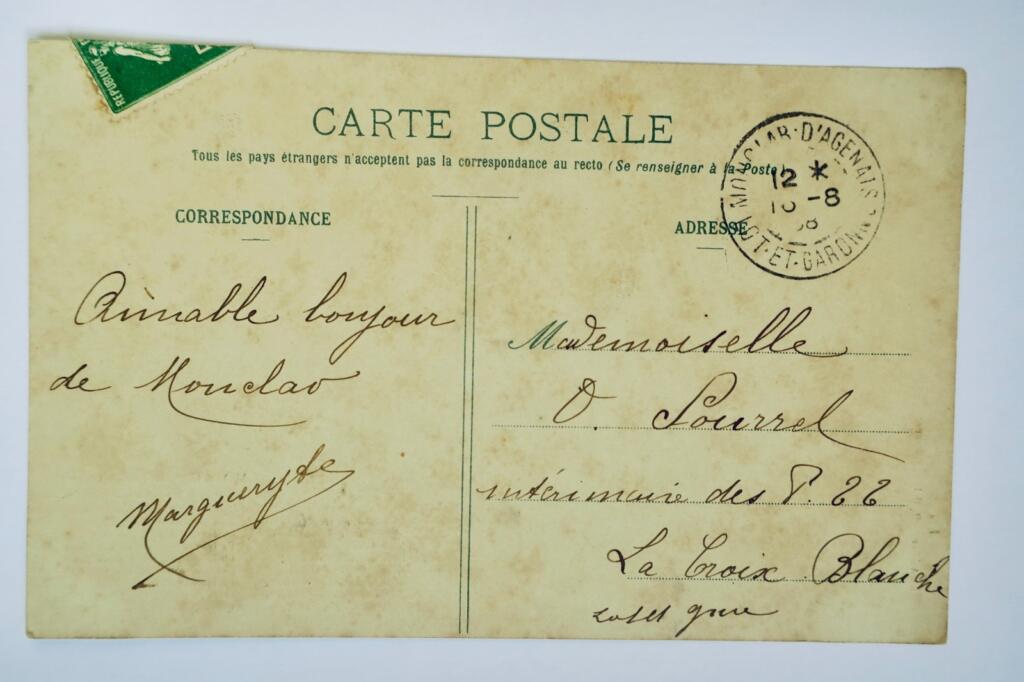 REPUBLIQUE
CARTE POSTALE
Tous les pays étrangers n'acceptent pas la correspondance au recto (Se renseigner à la Poste)
MONCLAR-D'AGENAIS
12 *
-8
LOT-ET-GARONNE
CORRESPONDANCE
ADRESSE
Aimable bonjour
de Monclar
Margueryte
Mademoiselle
O. Sourrel
intérimaire des P.
La Croix Blanche